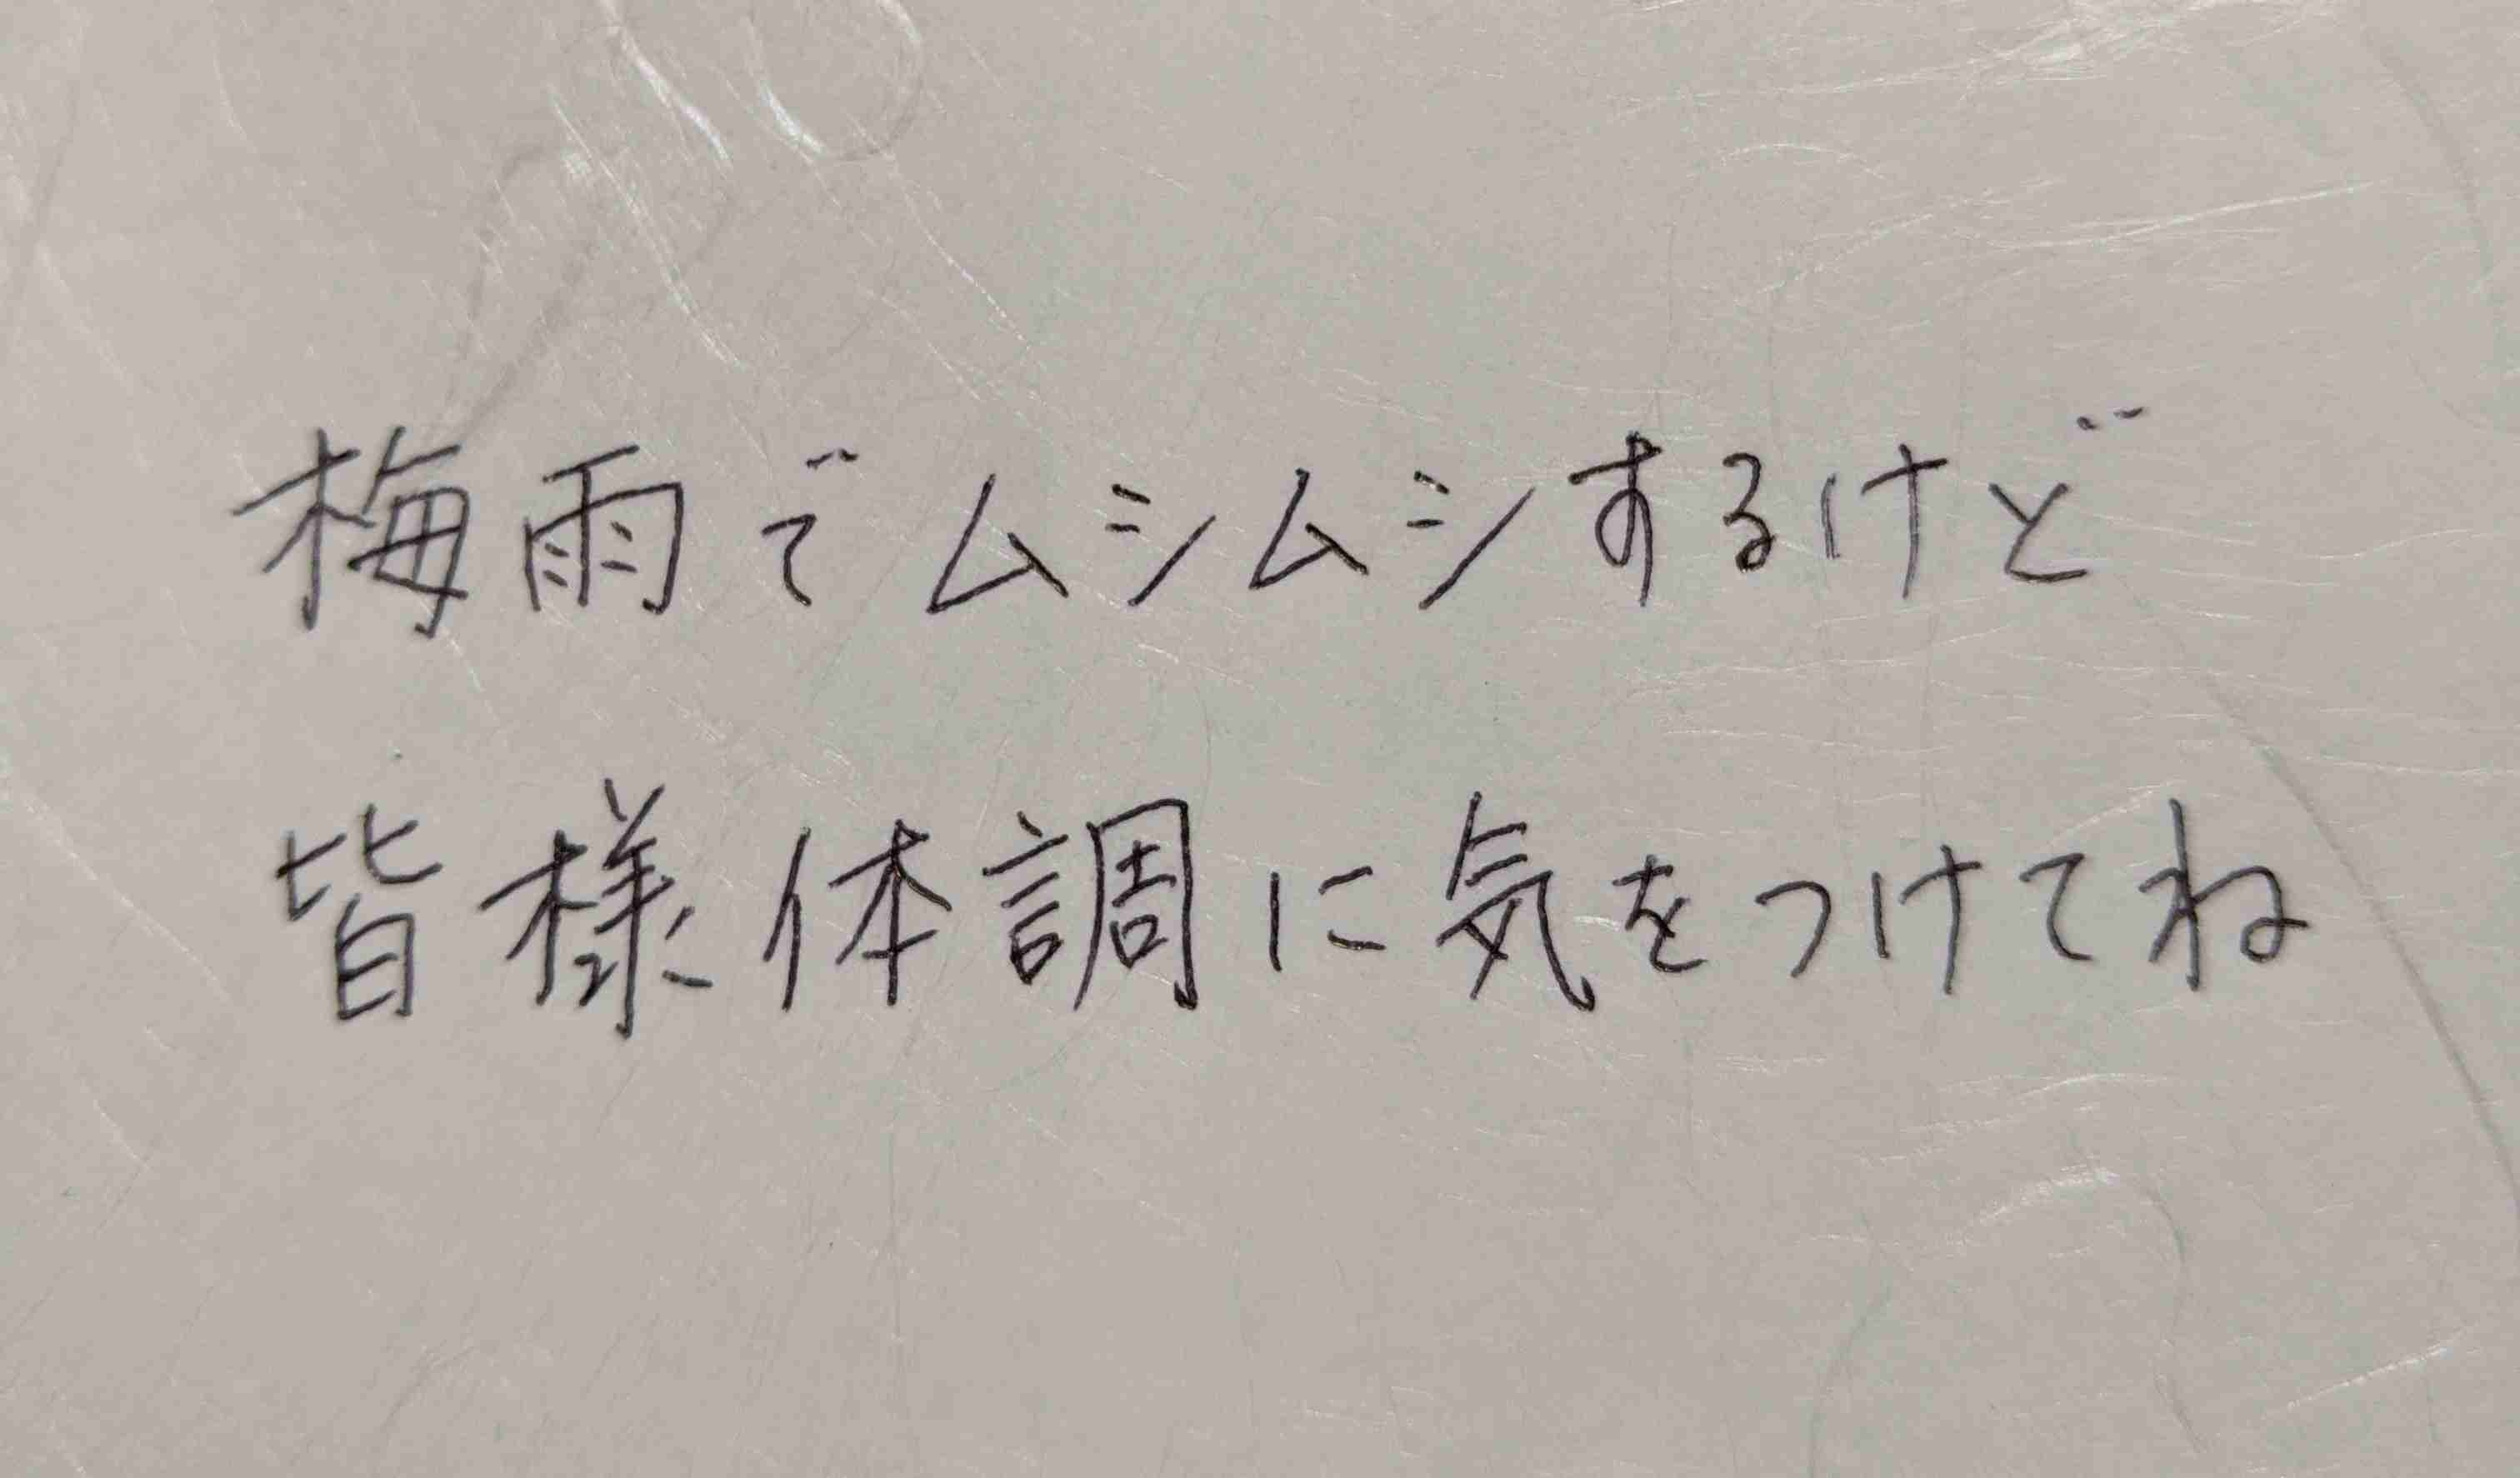 梅雨でムシムシするけど
皆様体調に気をつけてね